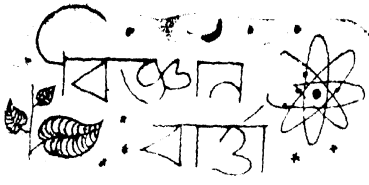 বিজ্ঞান
বার্তা